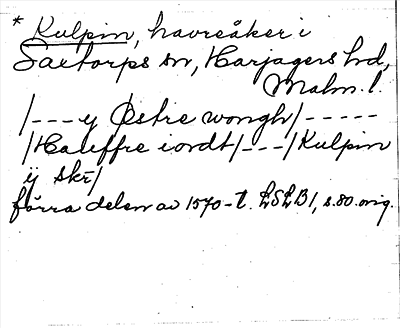 * Kulpin, havreåker i
Saxtorps sn, Harjagers hd,
Malm. l.
/---y Østre wongh/-----
/Haffre iordt/---/Kulpin
ij skr/
förra delen av 1570-t. LSLB1, s. 80. orig.